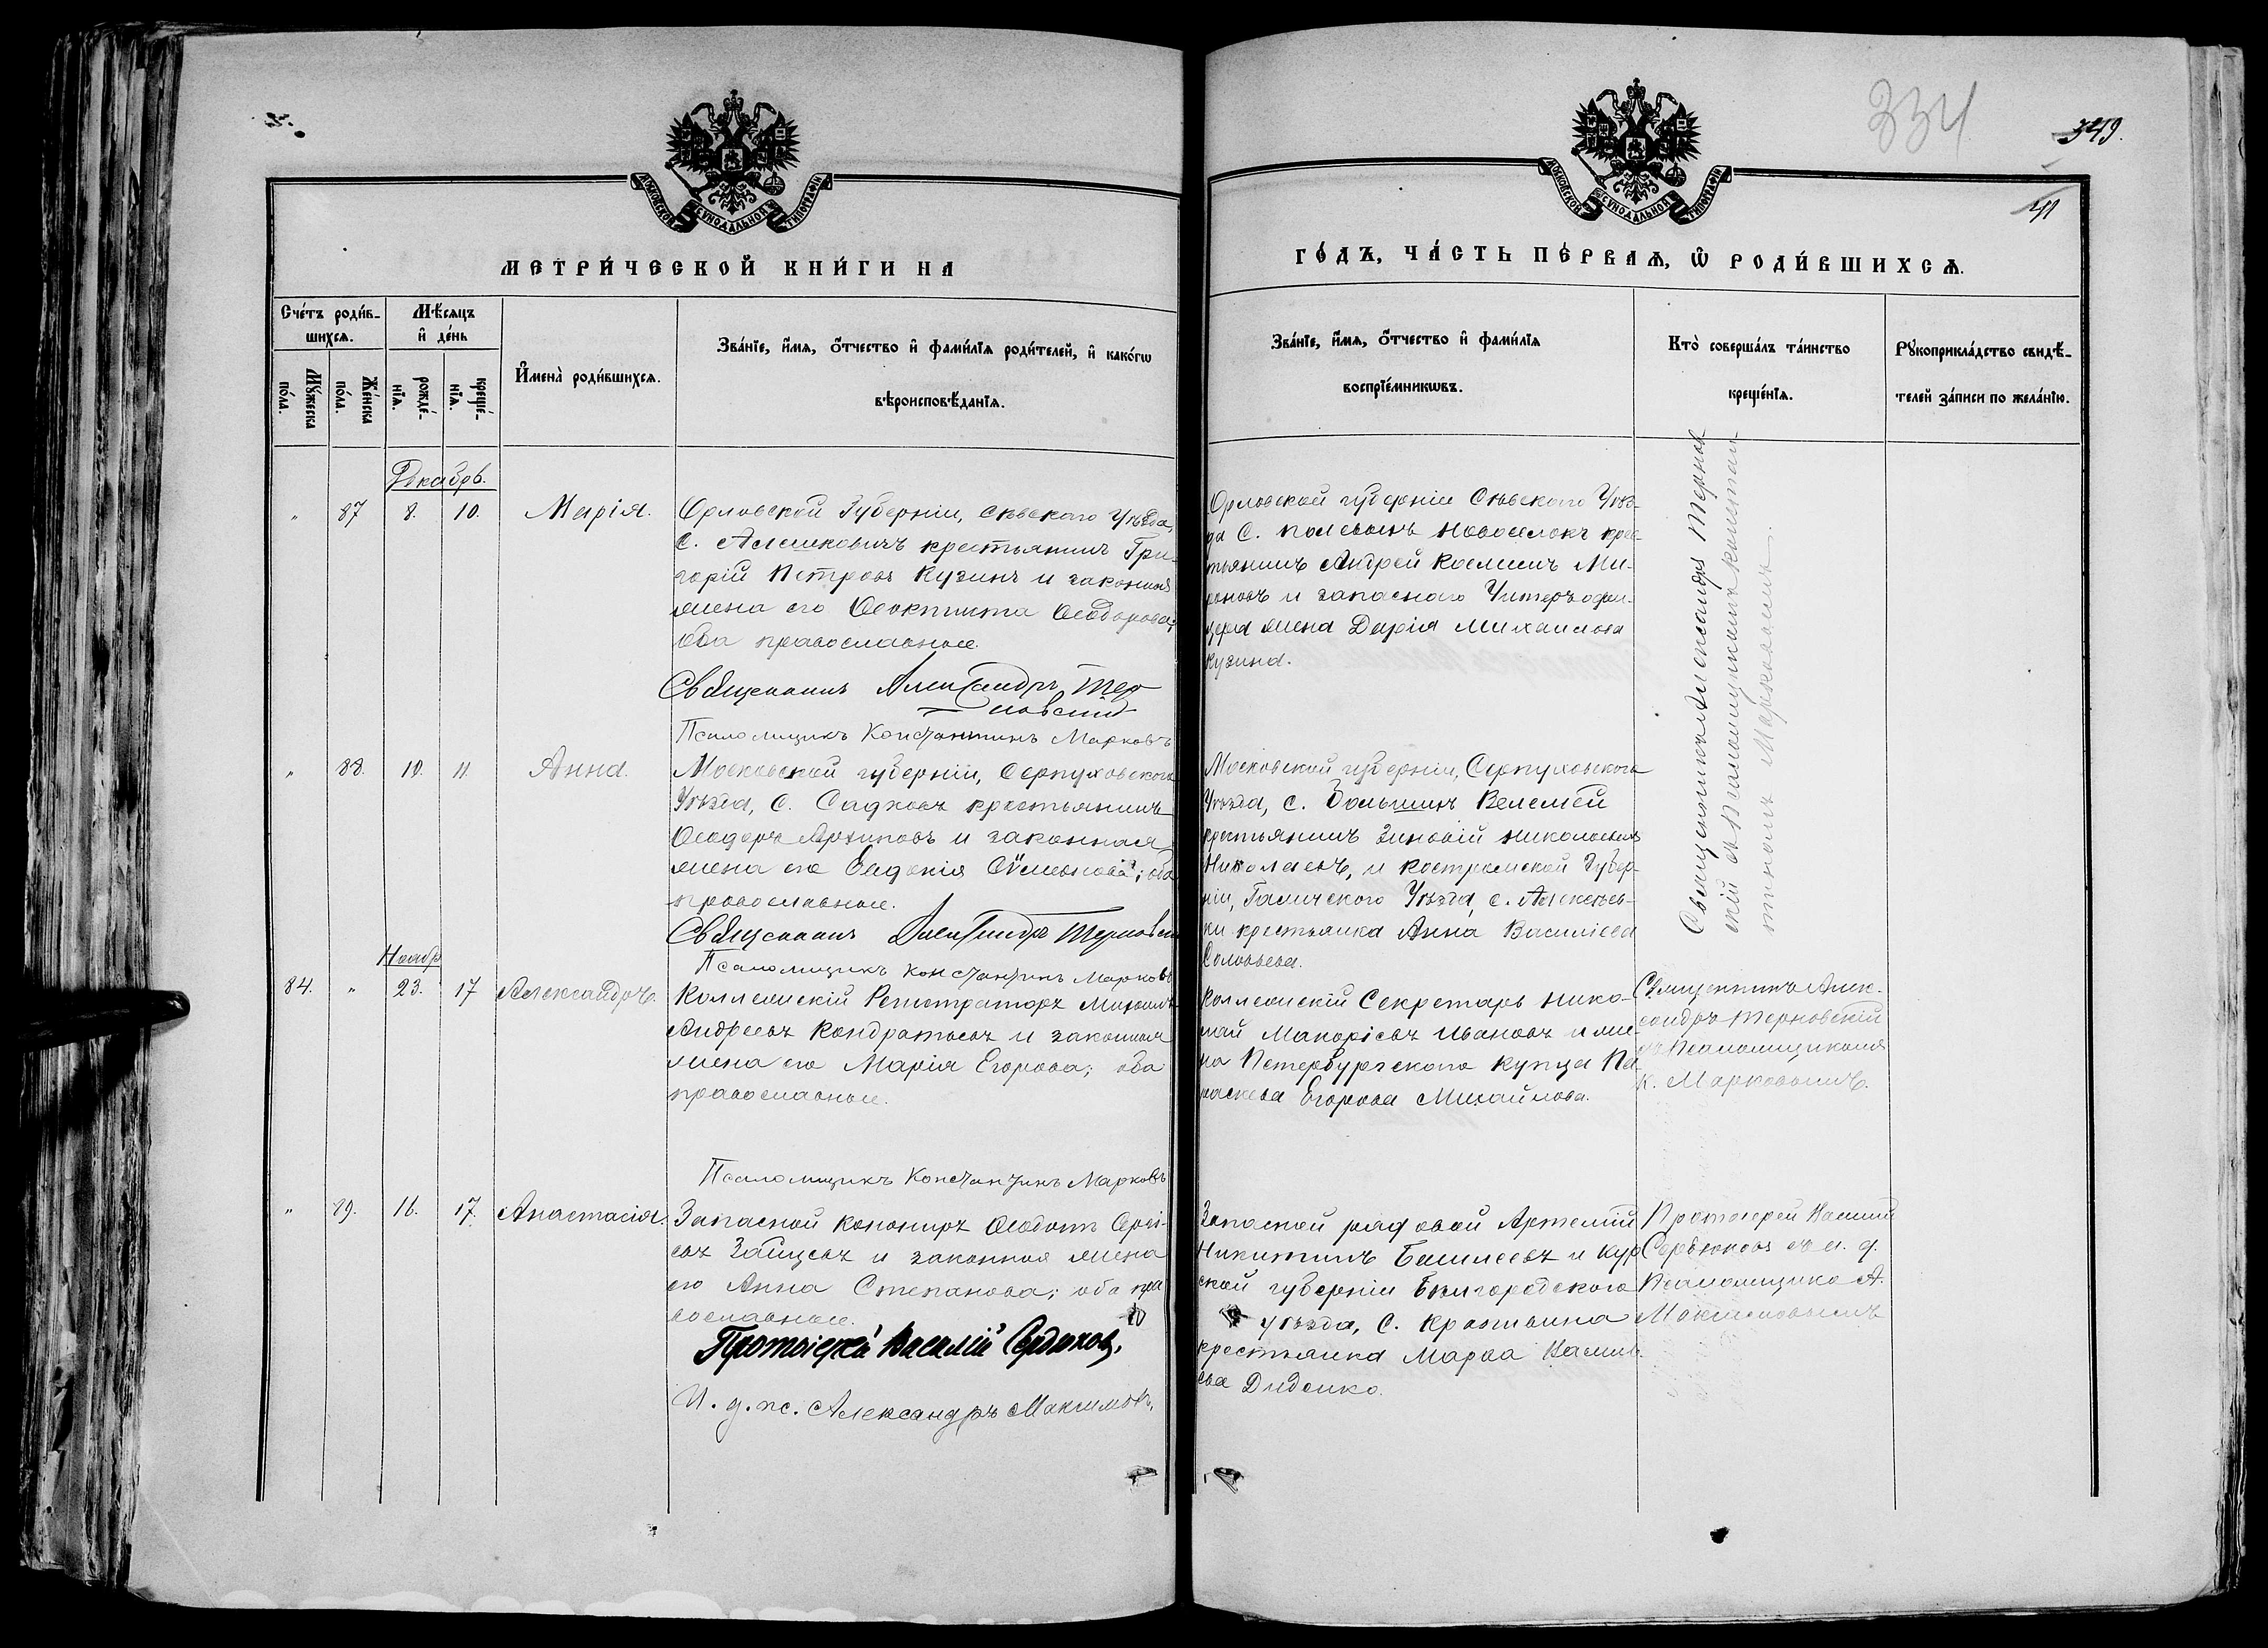 334
349.
41
МОСКОВСКОЙ СѴНОДАЛЬНОЙ ТИПОГРАФІИ
МОСКОВСКОЙ СѴНОДАЛЬНОЙ ТИПОГРАФІИ
МЕТРИ́ЧЕСКОЙ КНИ́ГИ НА
ГО́ДЪ, ЧА́СТЬ ПЕ́РВАѦ, Ѽ РОДИ́ВШИХСѦ.
Сче́тъ роди́в-
шихсѧ.
Мѣсѧцъ
и҆ де́нь
Мꙋ́жеска
по́ла.
Же́нска
по́ла.
рожде́-
нїѧ.
креще́-
нїѧ.
И҆мена̀ роди́вшихсѧ.
Зва́нїе, и҆́мѧ, ѻ҆́тчество и҆ фами́лїѧ роди́телей, и҆ како́гѡ
вѣроисповѣ́данїѧ.
Зва́нїе, и҆́мѧ, ѻ҆́тчество и҆ фами́лїѧ
воспрїе́мникѡвъ.
Кто̀ соверша́лъ та́инство
креще́нїѧ.
Рꙋкоприкла́дство свидѣ́-
телей за́писи по жела́нїю.
Декабрь.
„ 87 8. 10. Марія.
Орловской Губерніи, Сѣвского Уѣзда,
с. Алешковичъ крестьянинъ Гри-
горій Петровъ Кузинъ и законная
жена его Ѳеоктиста Ѳеодорова;
оба православные.
Священникъ Александръ Тер
новскій
Псаломщикъ Константинъ Марковъ
Орловской губерніи Сѣвского Уѣз-
да С. Новоселокъ крес
тьянинъ Андрей Косминъ Ми-
роновъ и запасного Унтеръ офи-
цера жена Дарія Михаилова
Кузина.
Священникъ Александръ Тернов
скій съ Псаломщикомъ Констан
тиномъ Марковымъ.
„ 88. 10. 11. Анна.
Московской губерніи, Серпуховского
Уѣзда, с. Садковъ крестьянинъ
Ѳеодоръ Архиповъ и законная
жена его Евдокія Сѵмеонова; оба
православные.
Священникъ Александръ Терновскій
Псаломщикъ Константинъ Марковъ
Московской губерніи, Серпуховского
Уѣзда, с. Большихъ Велемей
крестьянинъ Зиновій Николаевъ
Николаевъ, и Костромской Губер-
ніи, Галичского Уѣзда, с. Алексѣев-
ки крестьянка Анна Василіева
Соловьева.
Ноябр
84. „ 23. 17 Александръ.
Коллежскій Регистраторъ Михаилъ
Андреевъ Кондратьевъ и законная
жена его Марія Егорова; оба
православные.
Псаломщикъ Константинъ Марковъ
Коллежскій Секретарь Нико-
лай Макаріевъ Ивановъ и же-
на Петербургского купца Па
раскева Егорова Михайлова.
Священникъ Алек-
сандръ Терновскій
съ Псаломщикомъ
К. Марковымъ.
„ 89. 16. 17. Анастасія.
Запасной канониръ Ѳеодотъ Сергі-
евъ Зайцевъ и законная жена
его Анна Степанова; оба пра
вославные.
Протоіерей Василій Сердюковъ,
И. д. пс. Александръ Максимовъ,
Запасной рядовой Артемій
Никитинъ Башлеевъ и Кур
ской губерніи Бѣлгородского
уѣзда, С. крестьянка Марѳа Василь
ева Диденко.
Протоіерей Василій
Сердюковъ съ и. д.
Псаломщика А.
Максимовымъ